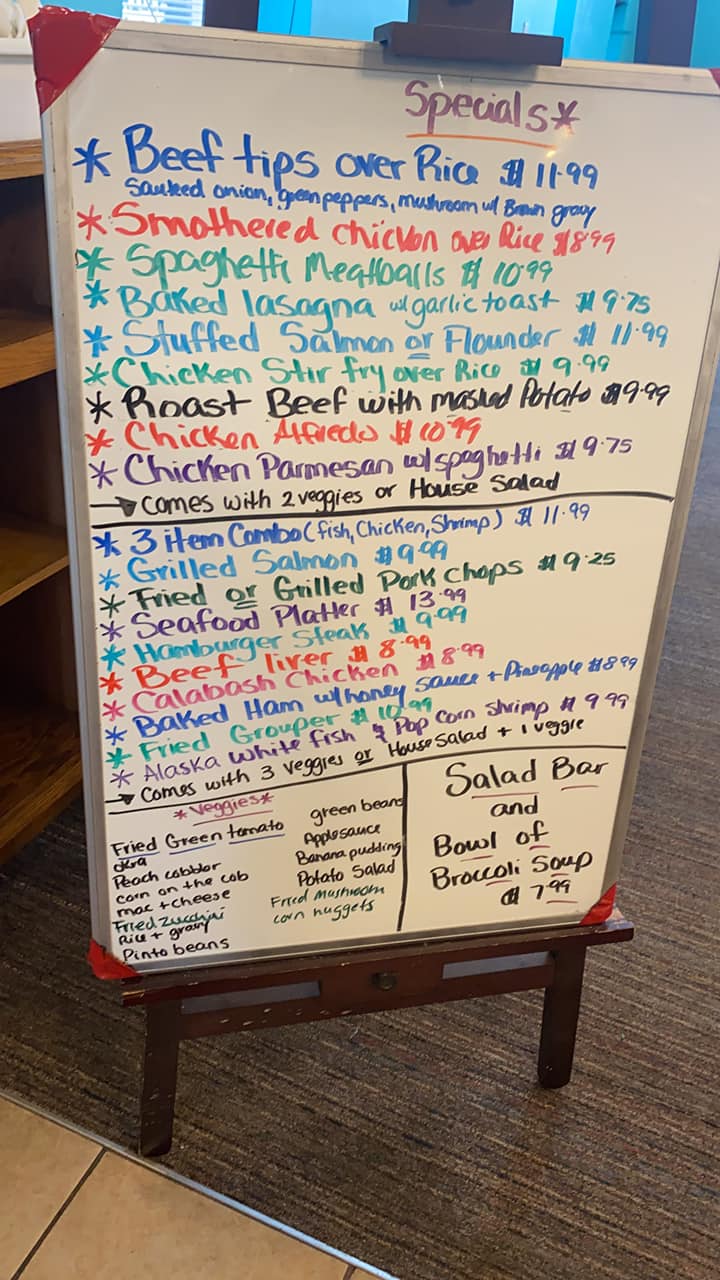 Specials*
* Beef tips over Rice $ 11.99
Sauteed onion, green peppers, mushroom w/ Brown gravy
* Smothered chicken over Rice $8.99
* Spaghetti Meatballs $ 10.99
* Baked lasagna w/ garlic toast $ 9.75
* Stuffed Salmon or Flounder $ 11.99
* Chicken Stir fry over Rice $ 9.99
* Roast Beef with mashed Potato $9.99
* Chicken Alfredo $ 10.99
* Chicken Parmesan w/ spaghetti $ 9.75
→ comes with 2 veggies or House Salad
* 3 item Combo (fish, Chicken, Shrimp) $ 11.99
* Grilled Salmon $9.99
* Fried or Grilled Pork Chops $ 9.25
* Seafood Platter $ 13.99
* Hamburger Steak $ 9.99
* Beef liver $ 8.99
* Calabash Chicken $ 8.99
* Baked Ham w/ honey sauce + Pineapple $8.99
* Fried Grouper $ 10.99
* Alaska White fish & Pop corn shrimp $ 9.99
→ Comes with 3 veggies or House Salad + 1 veggie
*Veggies*
Fried Green tomato
okra
Peach cobbler
corn on the cob
mac + cheese
Fried Zucchini
Rice + gravy
Pinto beans
green beans
Applesauce
Banana pudding
Potato Salad
Fried Mushroom
corn nuggets
Salad Bar
and
Bowl of
Broccoli Soup
$ 7.99